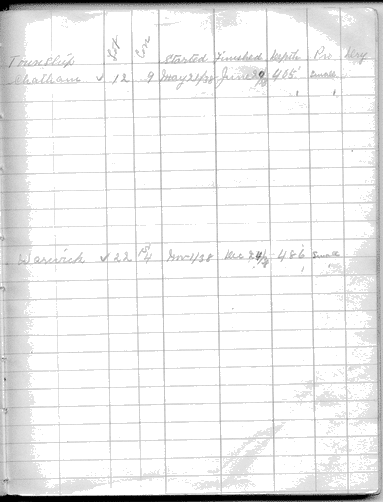 Township Lot Con Started Finished Depth Pro Dry
Chatham ✓ 12 9 May 21/38 June 405' small
Warwick ✓ 22 Nov 1/38 Dec 486 small